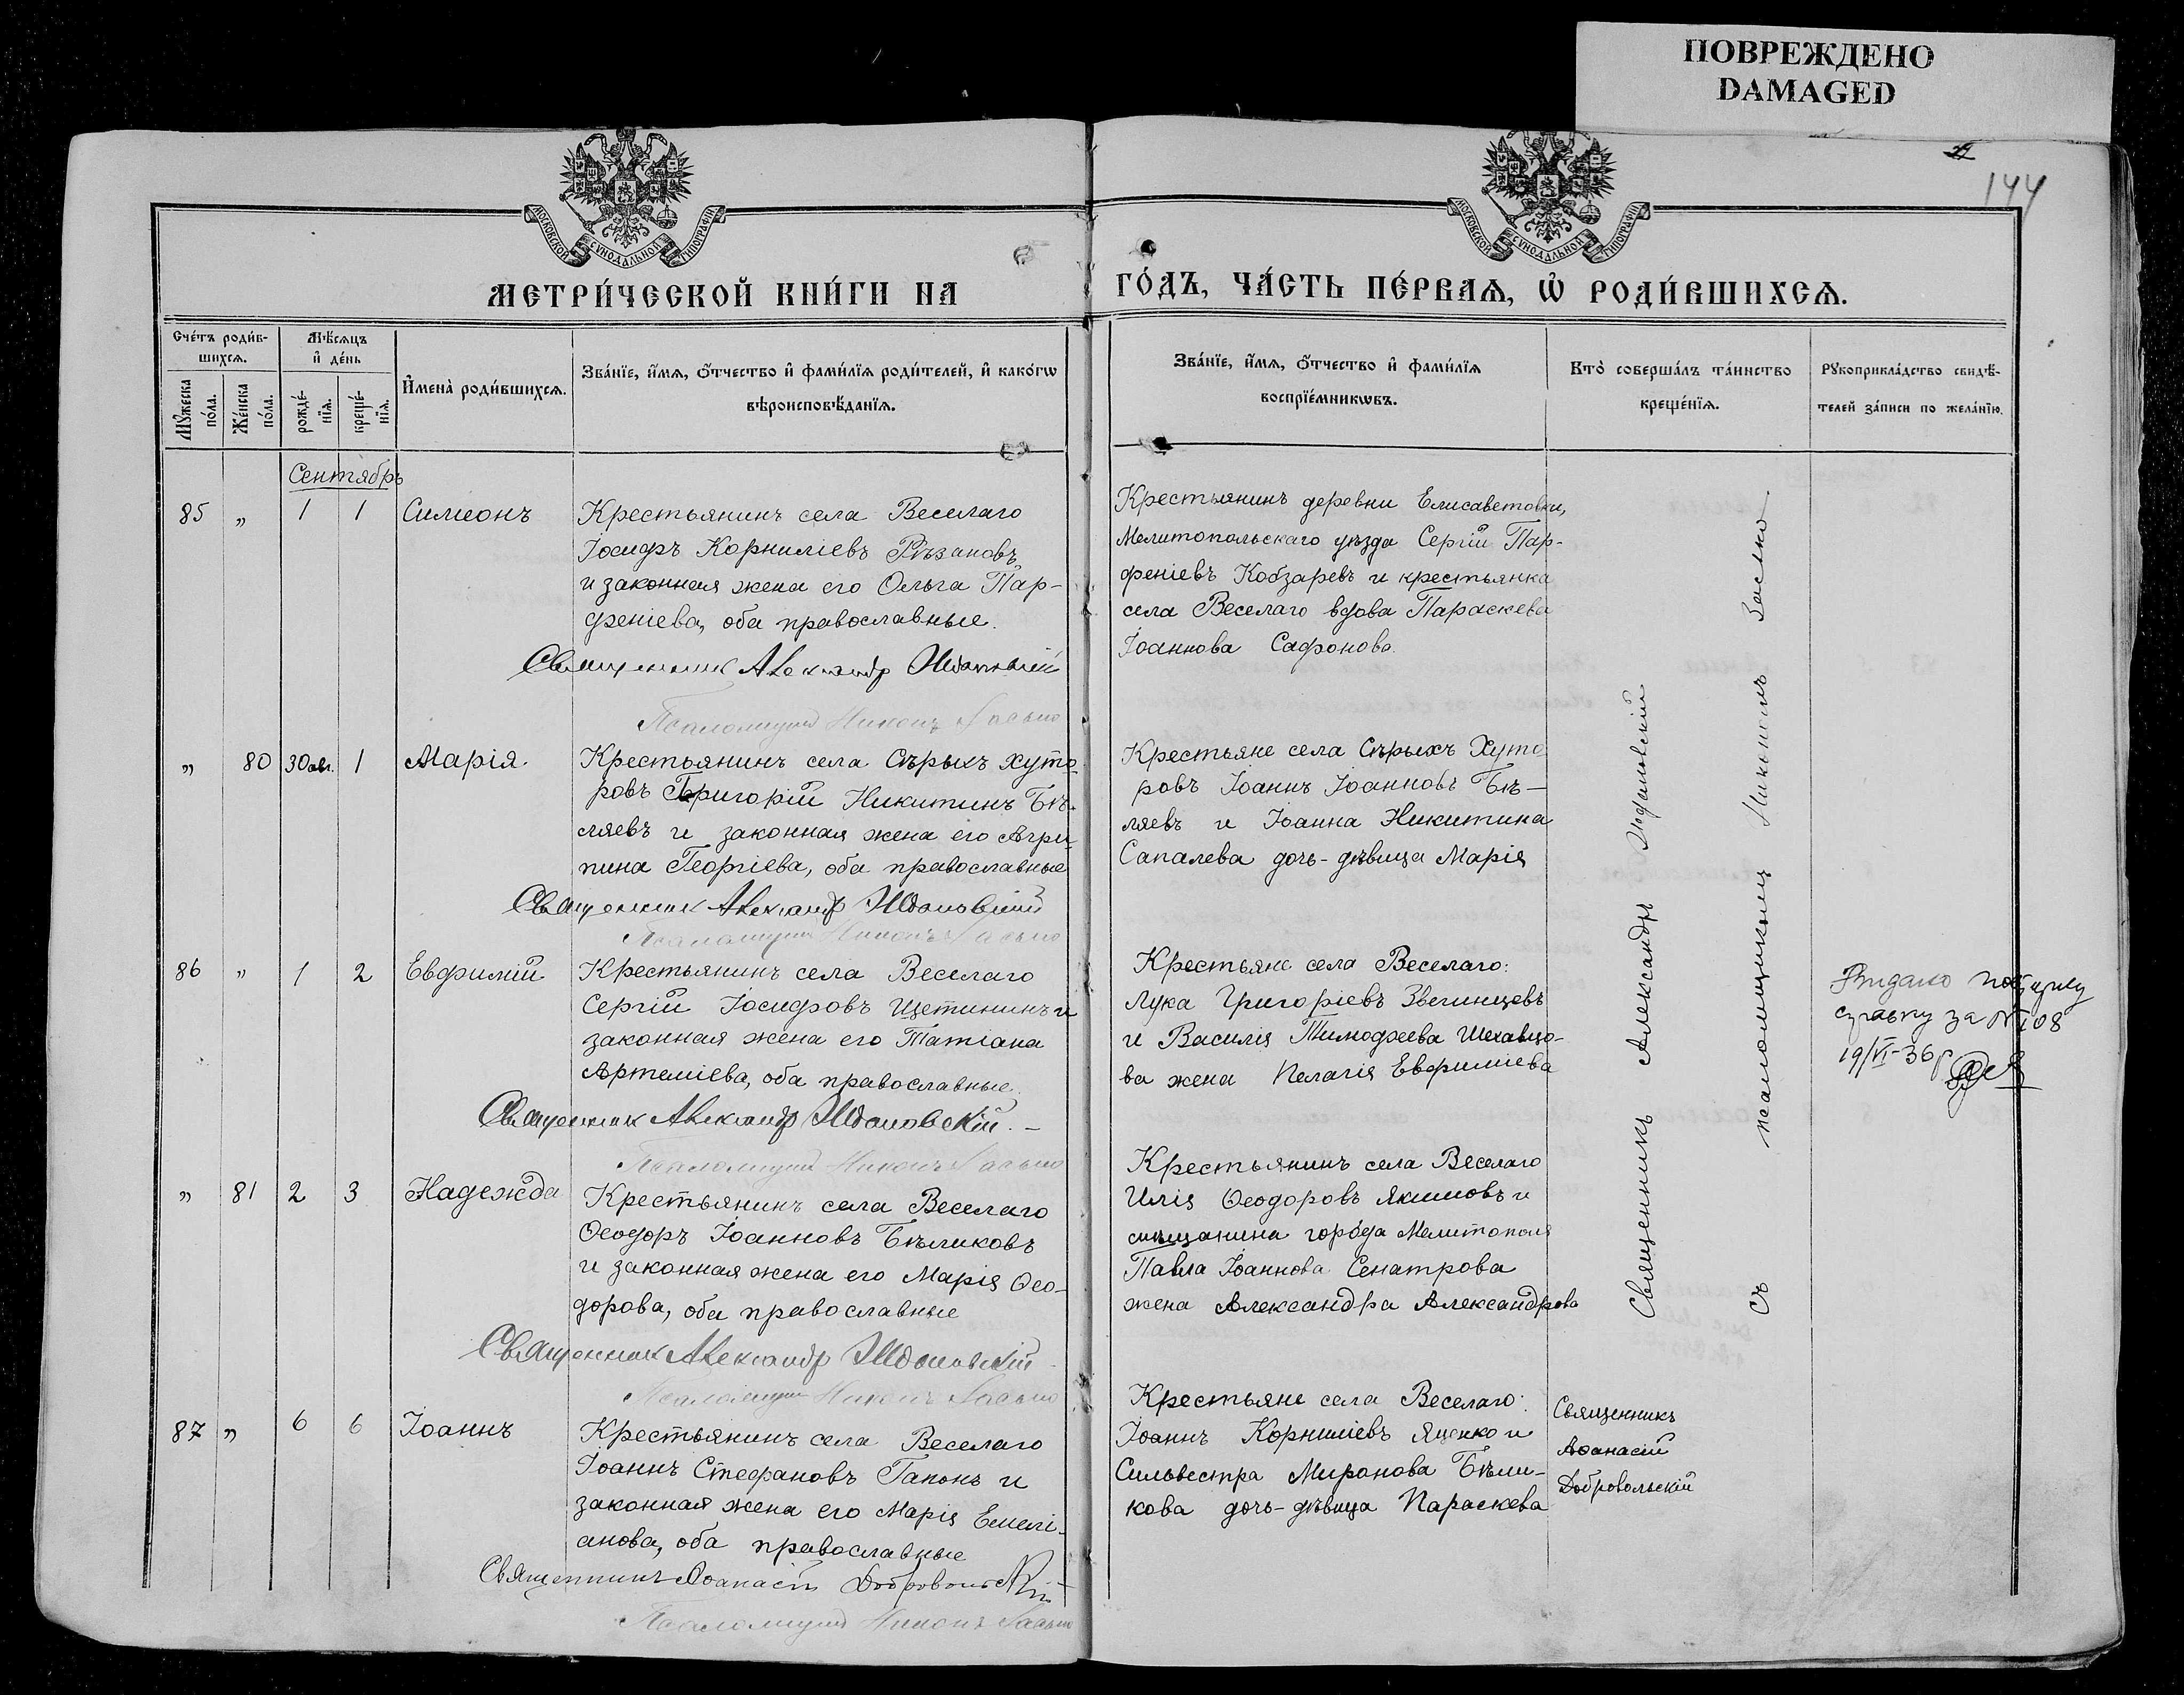 ПОВРЕЖДЕНО
DAMAGED
144
МОСКОВСКОЙ СУНОДАЛЬНОЙ ТИПОГРАФІИ
МОСКОВСКОЙ СУНОДАЛЬНОЙ ТИПОГРАФІИ
МЕТРИ́ЧЕСКОЙ КНИ́ГИ НА
ГО́ДЪ, ЧА́СТЬ ПЕ́РВАѦ, Ѡ҆ РОДИ́ВШИХСѦ.
Сче́тъ роди́в-
шихсѧ.
Мѣ́сѧцъ
и҆ де́нь
Мꙋ́жеска
по́ла.
Же́нска
по́ла.
рожде́-
нїѧ.
креще́-
нїѧ.
И҆мена̀ роди́вшихсѧ.
Зва́нїе, и҆́мѧ, ѻ҆́тчество и҆ фами́лїѧ роди́телей, и҆ како́гѡ
вѣроисповѣ́данїѧ.
Зва́нїе, и҆́мѧ, ѻ҆́тчество и҆ фами́лїѧ
воспрїе́мникѡвъ.
Кто̀ соверша́лъ та́инство
креще́нїѧ.
Рꙋкоприкла́дство свидѣ́-
телей за́писи по жела́нїю.
Сентябрь
85 „ 1 1 Симеонъ
Крестьянинъ села Веселаго
Іосифъ Корниліевъ Рѣзановъ
и законная жена его Ольга Пар-
феніева, оба православные.
Священник Александр Ждановскій
Псаломщикъ Никонъ Засько
Крестьянинъ деревни Елисаветовки,
Мелитопольскаго уѣзда Сергій Пар-
феніевъ Кобзаревъ и крестьянка
села Веселаго вдова Параскева
Іоаннова Сафонова.
„ 80 30 авг. 1 Марія.
Крестьянинъ села Сѣрыхъ Хуто-
ровъ Григорій Никитинъ Бѣ-
ляевъ и законная жена его Агри-
пина Георгіева, оба православные
Священник Александр Ждановскій
Псаломщикъ Никонъ Засько
Крестьяне села Сѣрыхъ Хуто
ровъ Іоаннъ Іоанновъ Бѣ-
ляевъ и Іоанна Никитина
Сапалева дочь-дѣвица Марія
86 „ 1 2 Евфимій
Крестьянинъ села Веселаго
Сергій Іосифовъ Щетининъ и
законная жена его Татіана
Артеміева, оба православные.
Священник Александр Ждановскій. –
Псаломщикъ Никонъ Засько
Крестьяне села Веселаго:
Лука Григоріевъ Звегинцевъ
и Василія Тимофеева Шехавцо-
ва жена Пелагія Евфиміева
справку за № 108
19/VI-36 г
„ 81 2 3 Надежда
Крестьянинъ села Веселаго
Ѳеодоръ Іоанновъ Бѣликовъ
и законная жена его Марія Ѳео-
дорова, оба православные
Священник Александр Ждановскій
Псаломщикъ Никонъ Засько
Крестьянинъ села Веселаго
Илія Ѳеодоровъ Якимовъ и
мѣщанина города Мелитополя
Павла Іоаннова Сенатрова
жена Александра Александрова
Священникъ Александръ Ждановскій
съ псаломщикомъ Никономъ Засько
87 „ 6 6 Іоаннъ
Крестьянинъ села Веселаго
Іоаннъ Стефановъ Гапонъ и
законная жена его Марія Емелі-
анова, оба православные
Священникъ Аѳанасій Добровольскій
Псаломщикъ Никонъ Засько
Крестьяне села Веселаго:
Іоаннъ Корниліевъ Яценко и
Сильвестра Миронова Бѣли-
кова дочь-дѣвица Параскева
Священникъ
Аѳанасій
Добровольскій